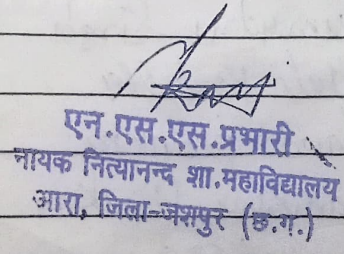 एन.एस.एस.प्रभारी
नायक नित्यानन्द शा.महाविद्यालय
आरा, जिला-जशपुर (छ.ग.)